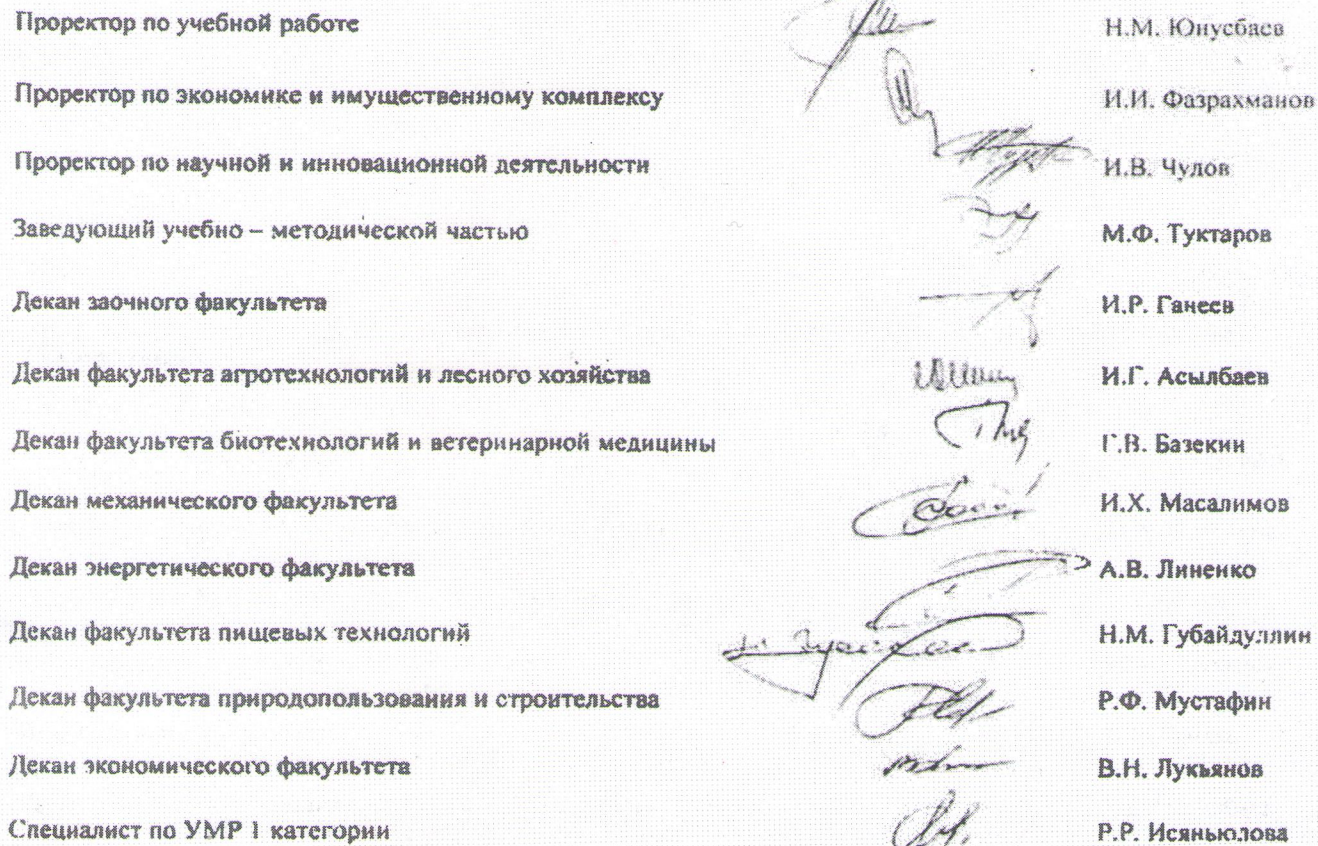 Проректор по учебной работе Н.М. Юнусбаев
Проректор по экономике и имущественному комплексу И.И. Фазрахманов
Проректор по научной и инновационной деятельности И.В. Чудов
Заведующий учебно – методической частью М.Ф. Туктаров
Декан заочного факультета И.Р. Ганеев
Декан факультета агротехнологий и лесного хозяйства И.Г. Асылбаев
Декан факультета биотехнологий и ветеринарной медицины Г.В. Базекин
Декан механического факультета И.Х. Масалимов
Декан энергетического факультета А.В. Линенко
Декан факультета пищевых технологий Н.М. Губайдуллин
Декан факультета природопользования и строительства Р.Ф. Мустафин
Декан экономического факультета В.Н. Лукьянов
Специалист по УМР 1 категории Р.Р. Исяньюлова